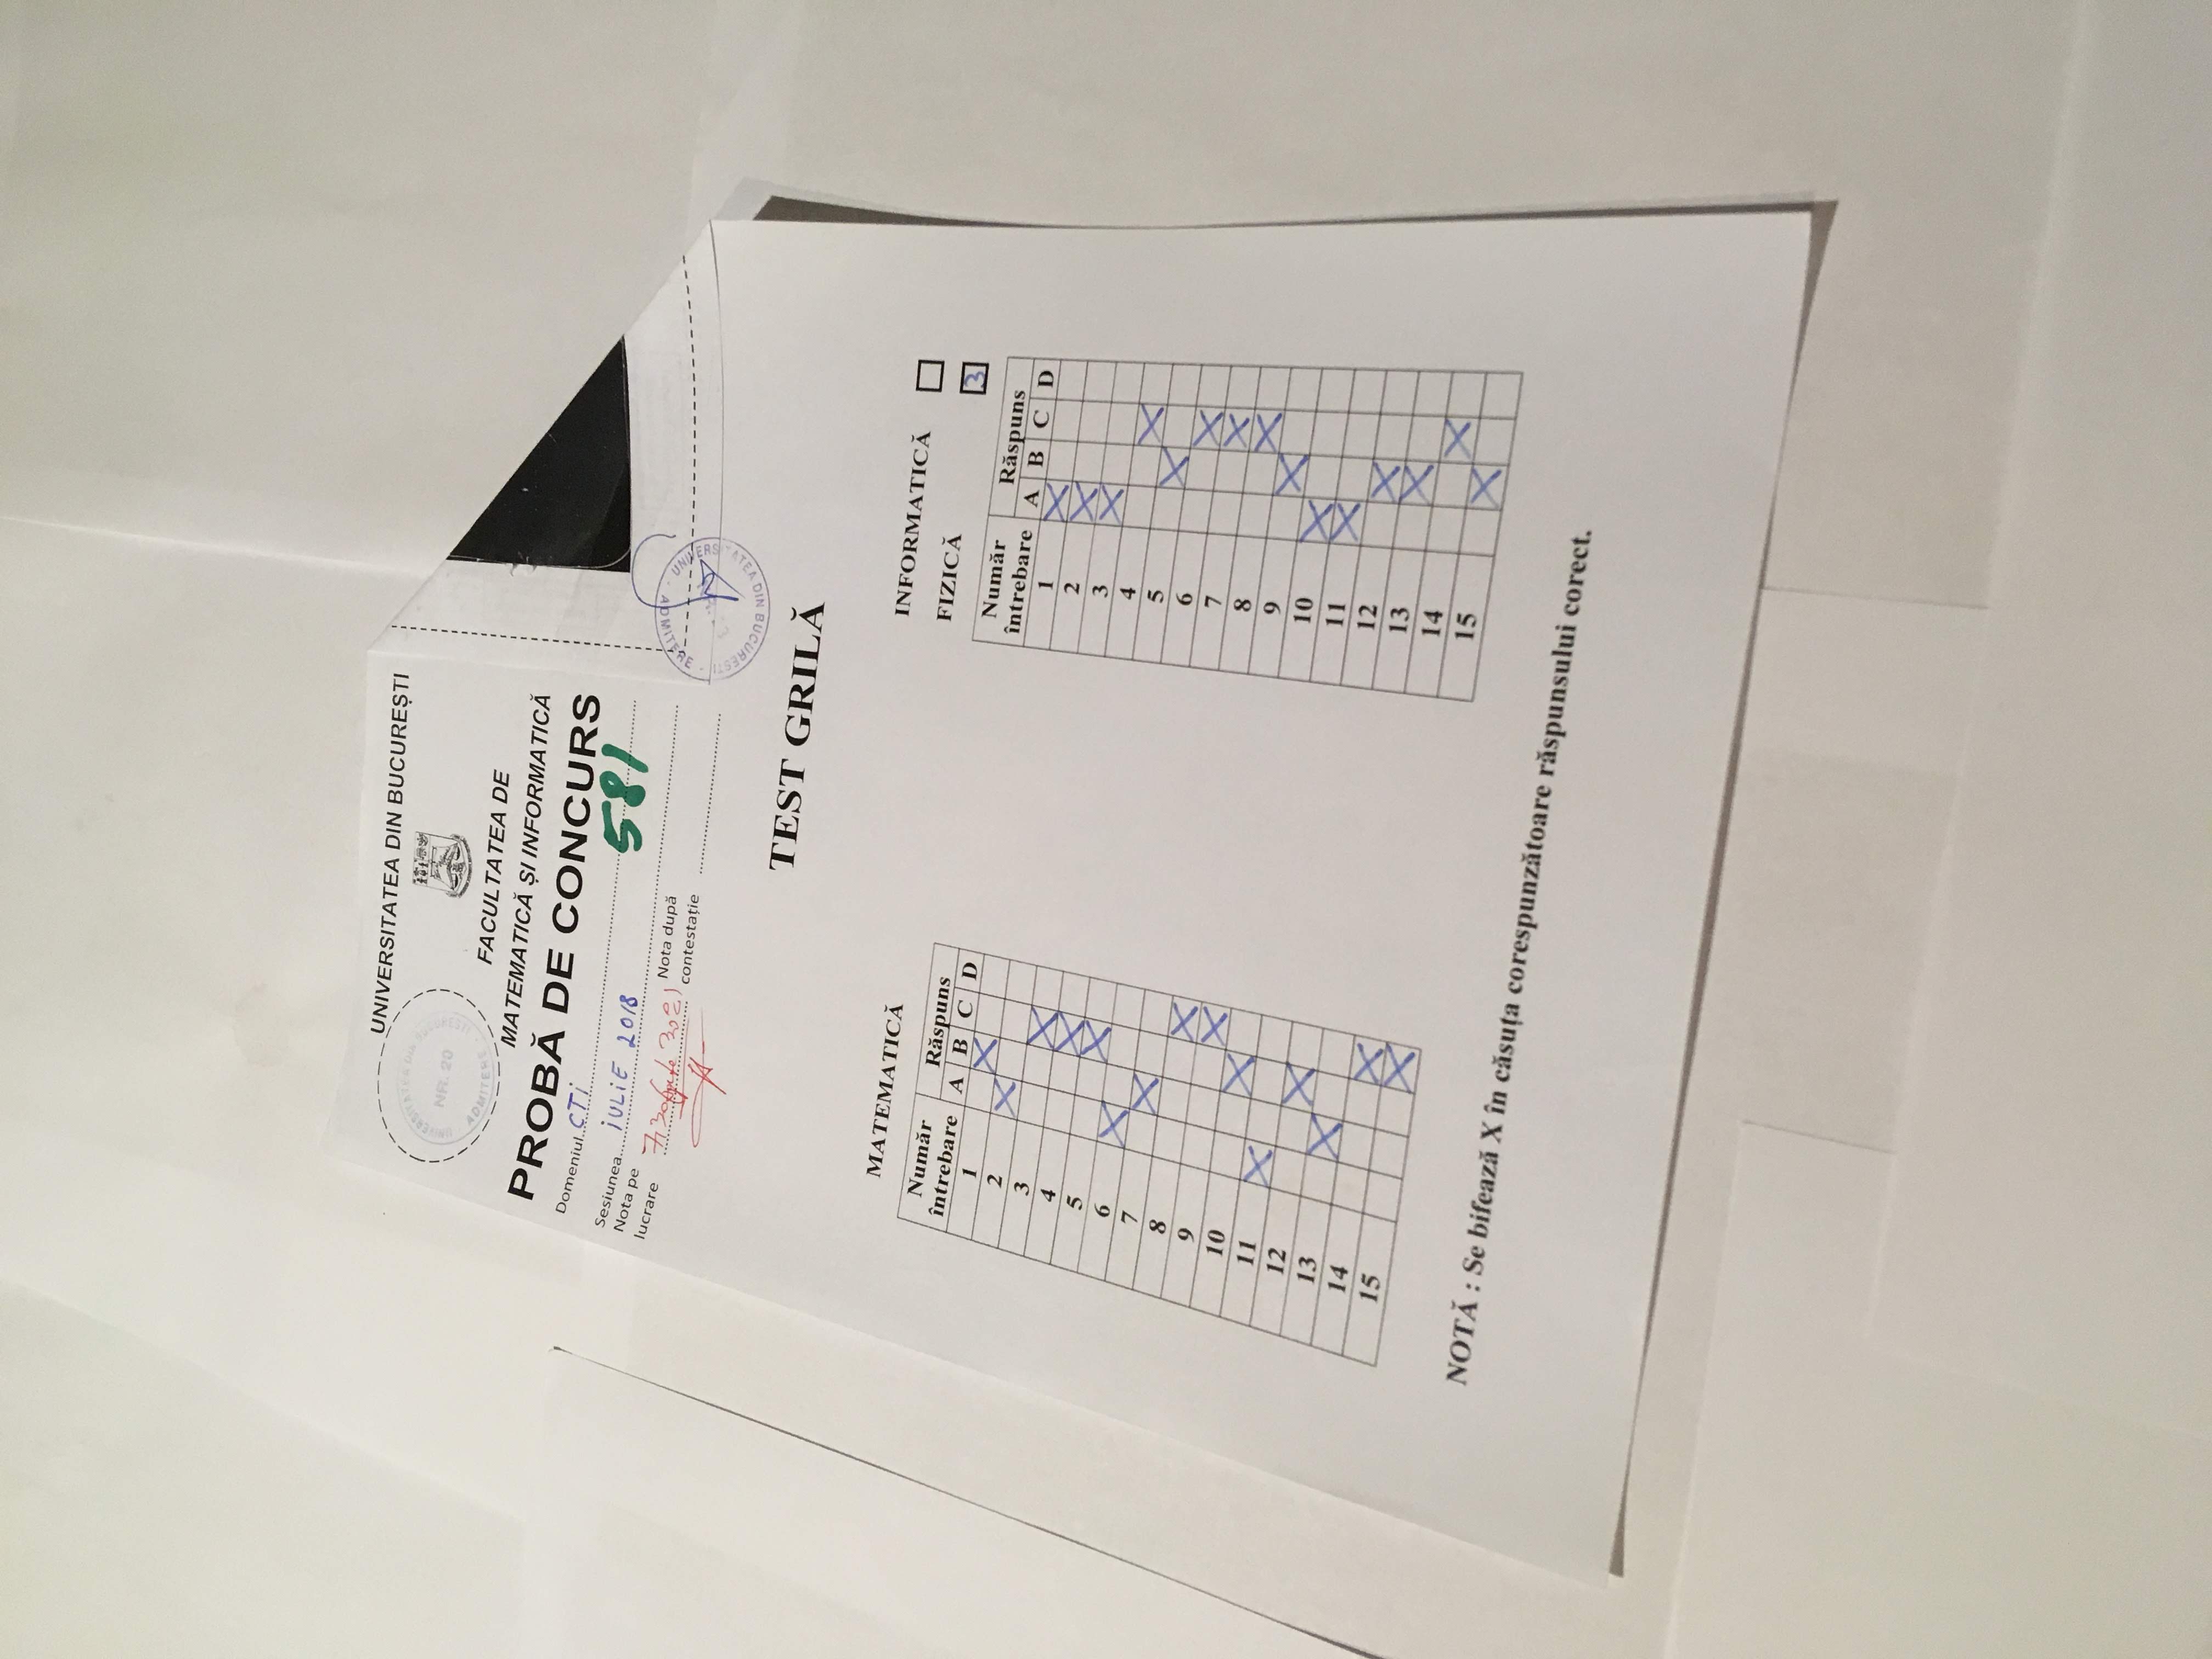 UNIVERSITATEA DIN BUCUREȘTI
UNIVERSITATEA DIN BUCUREȘTI
NR. 20
ADMITERE
FACULTATEA DE
MATEMATICĂ ȘI INFORMATICĂ
PROBĂ DE CONCURS
Domeniul CTi
581
Sesiunea iULiE 2018
Nota pe lucrare 7,30
Nota după contestație
UNIVERSITATEA DIN BUCUREȘTI - ADMITERE
TEST GRILĂ
MATEMATICĂ
Număr întrebare Răspuns
A B C D
1 X
2 X
3 X
4 X
5 X
6 X
7 X
8 X
9 X
10 X
11 X
12 X
13 X
14 X
15 X
INFORMATICĂ
FIZICĂ 3
Număr întrebare Răspuns
A B C D
1 X
2 X
3 X
4 X
5 X
6 X
7 X
8 X
9 X
10 X
11 X
12 X
13 X
14 X
15 X
NOTĂ : Se bifează X în căsuța corespunzătoare răspunsului corect.